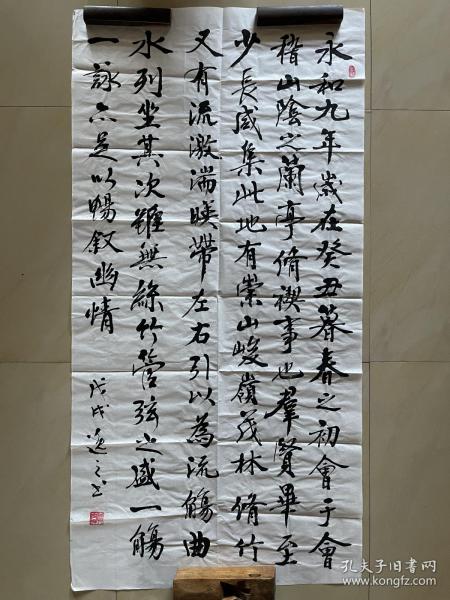 永和九年歲在癸丑暮春之初會于會
稽山陰之蘭亭脩禊事也羣賢畢至
少長咸集此地有崇山峻嶺茂林脩竹
又有流激湍暎帶左右引以為流觴曲
水列坐其次雖無絲竹管弦之盛一觴
一詠亦足以暢叙幽情
戊戌逸之书
孔夫子旧书网
www.kongfz.com